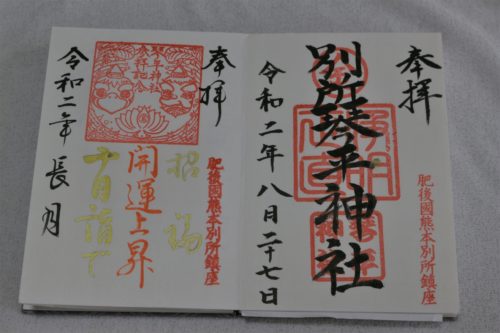 奉拝
肥後國熊本別所鎮座
別所琴平神社
令和二年八月二十七日
奉拝
肥後國熊本別所鎮座
招福
開運上昇
令和二年長月